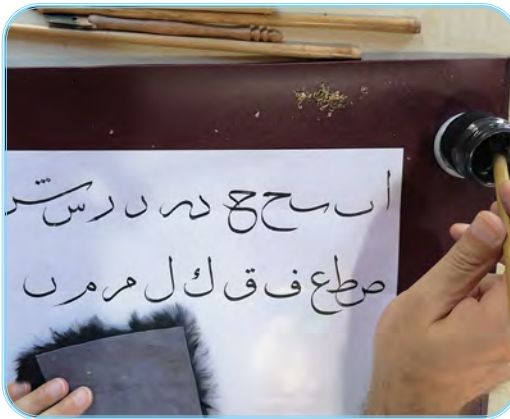 ا ٮ ح ح د ر ر س ش
ص ط ع ف ق ك ل م م ں